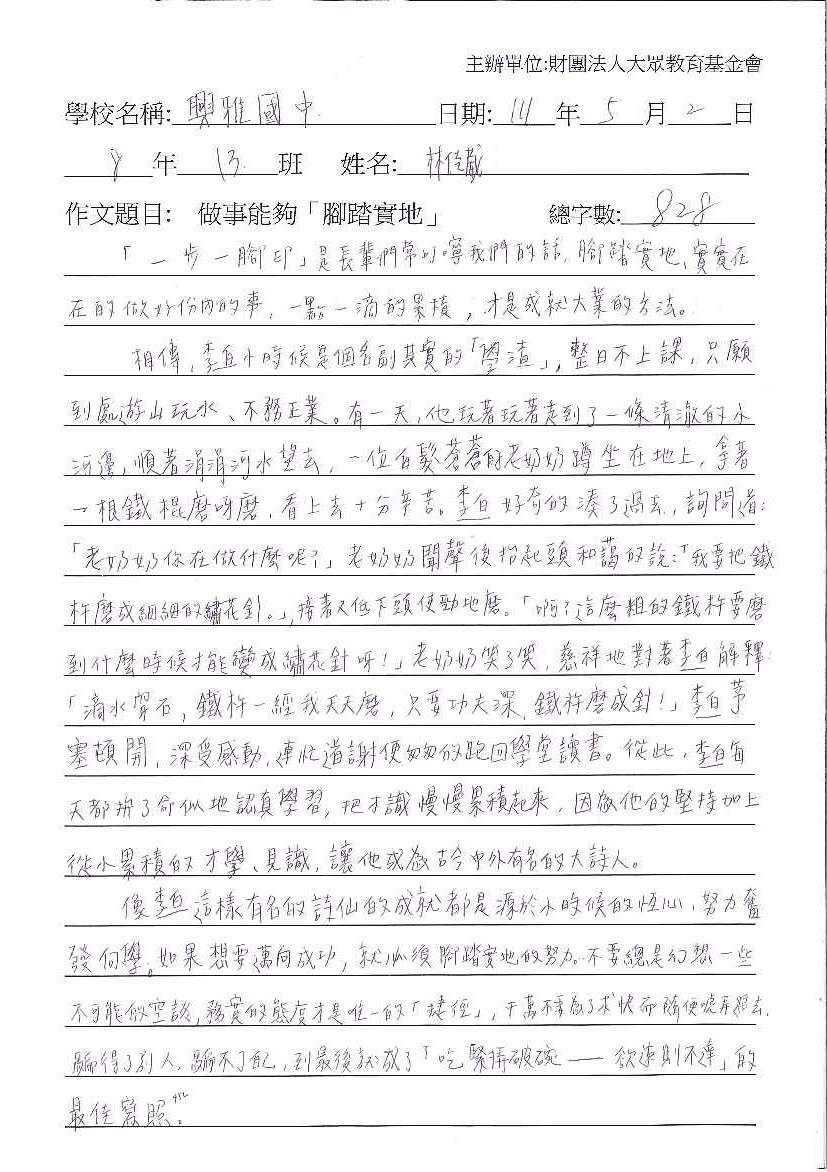 主辦單位:財團法人大眾教育基金會
學校名稱: 興雅國中 日期: 111 年 5 月 2 日
8 年 13 班 姓名: 林佳葳
作文題目: 做事能夠「腳踏實地」 總字數: 828
「一步一腳印」是長輩們常叮嚀我們的話,腳踏實地、實實在
在的做好份內的事,一點一滴的累積,才是成就大業的方法。
相傳,李白小時候是個名副其實的「學渣」,整日不上課,只願
到處遊山玩水、不務正業。有一天,他玩著玩著走到了一條清澈的小
河邊,順著涓涓河水望去,一位白髮蒼蒼的老奶奶蹲坐在地上,拿著
一根鐵棍磨呀磨,看上去十分辛苦。李白好奇的湊了過去,詢問道:
「老奶奶你在做什麼呢?」老奶奶聞聲後抬起頭和藹的說:「我要把鐵
杵磨成細細的繡花針。」,接著又低下頭使勁地磨。「啊?這麼粗的鐵杵要磨
到什麼時候才能變成繡花針呀!」老奶奶笑了笑,慈祥地對著李白解釋:
「滴水穿石,鐵杵一經我天天磨,只要功夫深,鐵杵磨成針!」李白茅
塞頓開,深受感動,連忙道謝便匆匆的跑回學堂讀書。從此,李白每
天都拚了命似地認真學習,把才識慢慢累積起來,因為他的堅持加上
從小累積的才學、見識,讓他成為古今中外有名的大詩人。
像李白這樣有名的詩仙的成就都是源於小時候的恆心,努力奮
發向學。如果想要邁向成功,就必須腳踏實地的努力。不要總是幻想一些
不可能的空談,務實的態度才是唯一的「捷徑」,千萬不要為了求快而隨便唬弄過去,
騙得了別人,騙不了自己,到最後就成了「吃緊弄破碗——欲速則不達」的
最佳寫照。